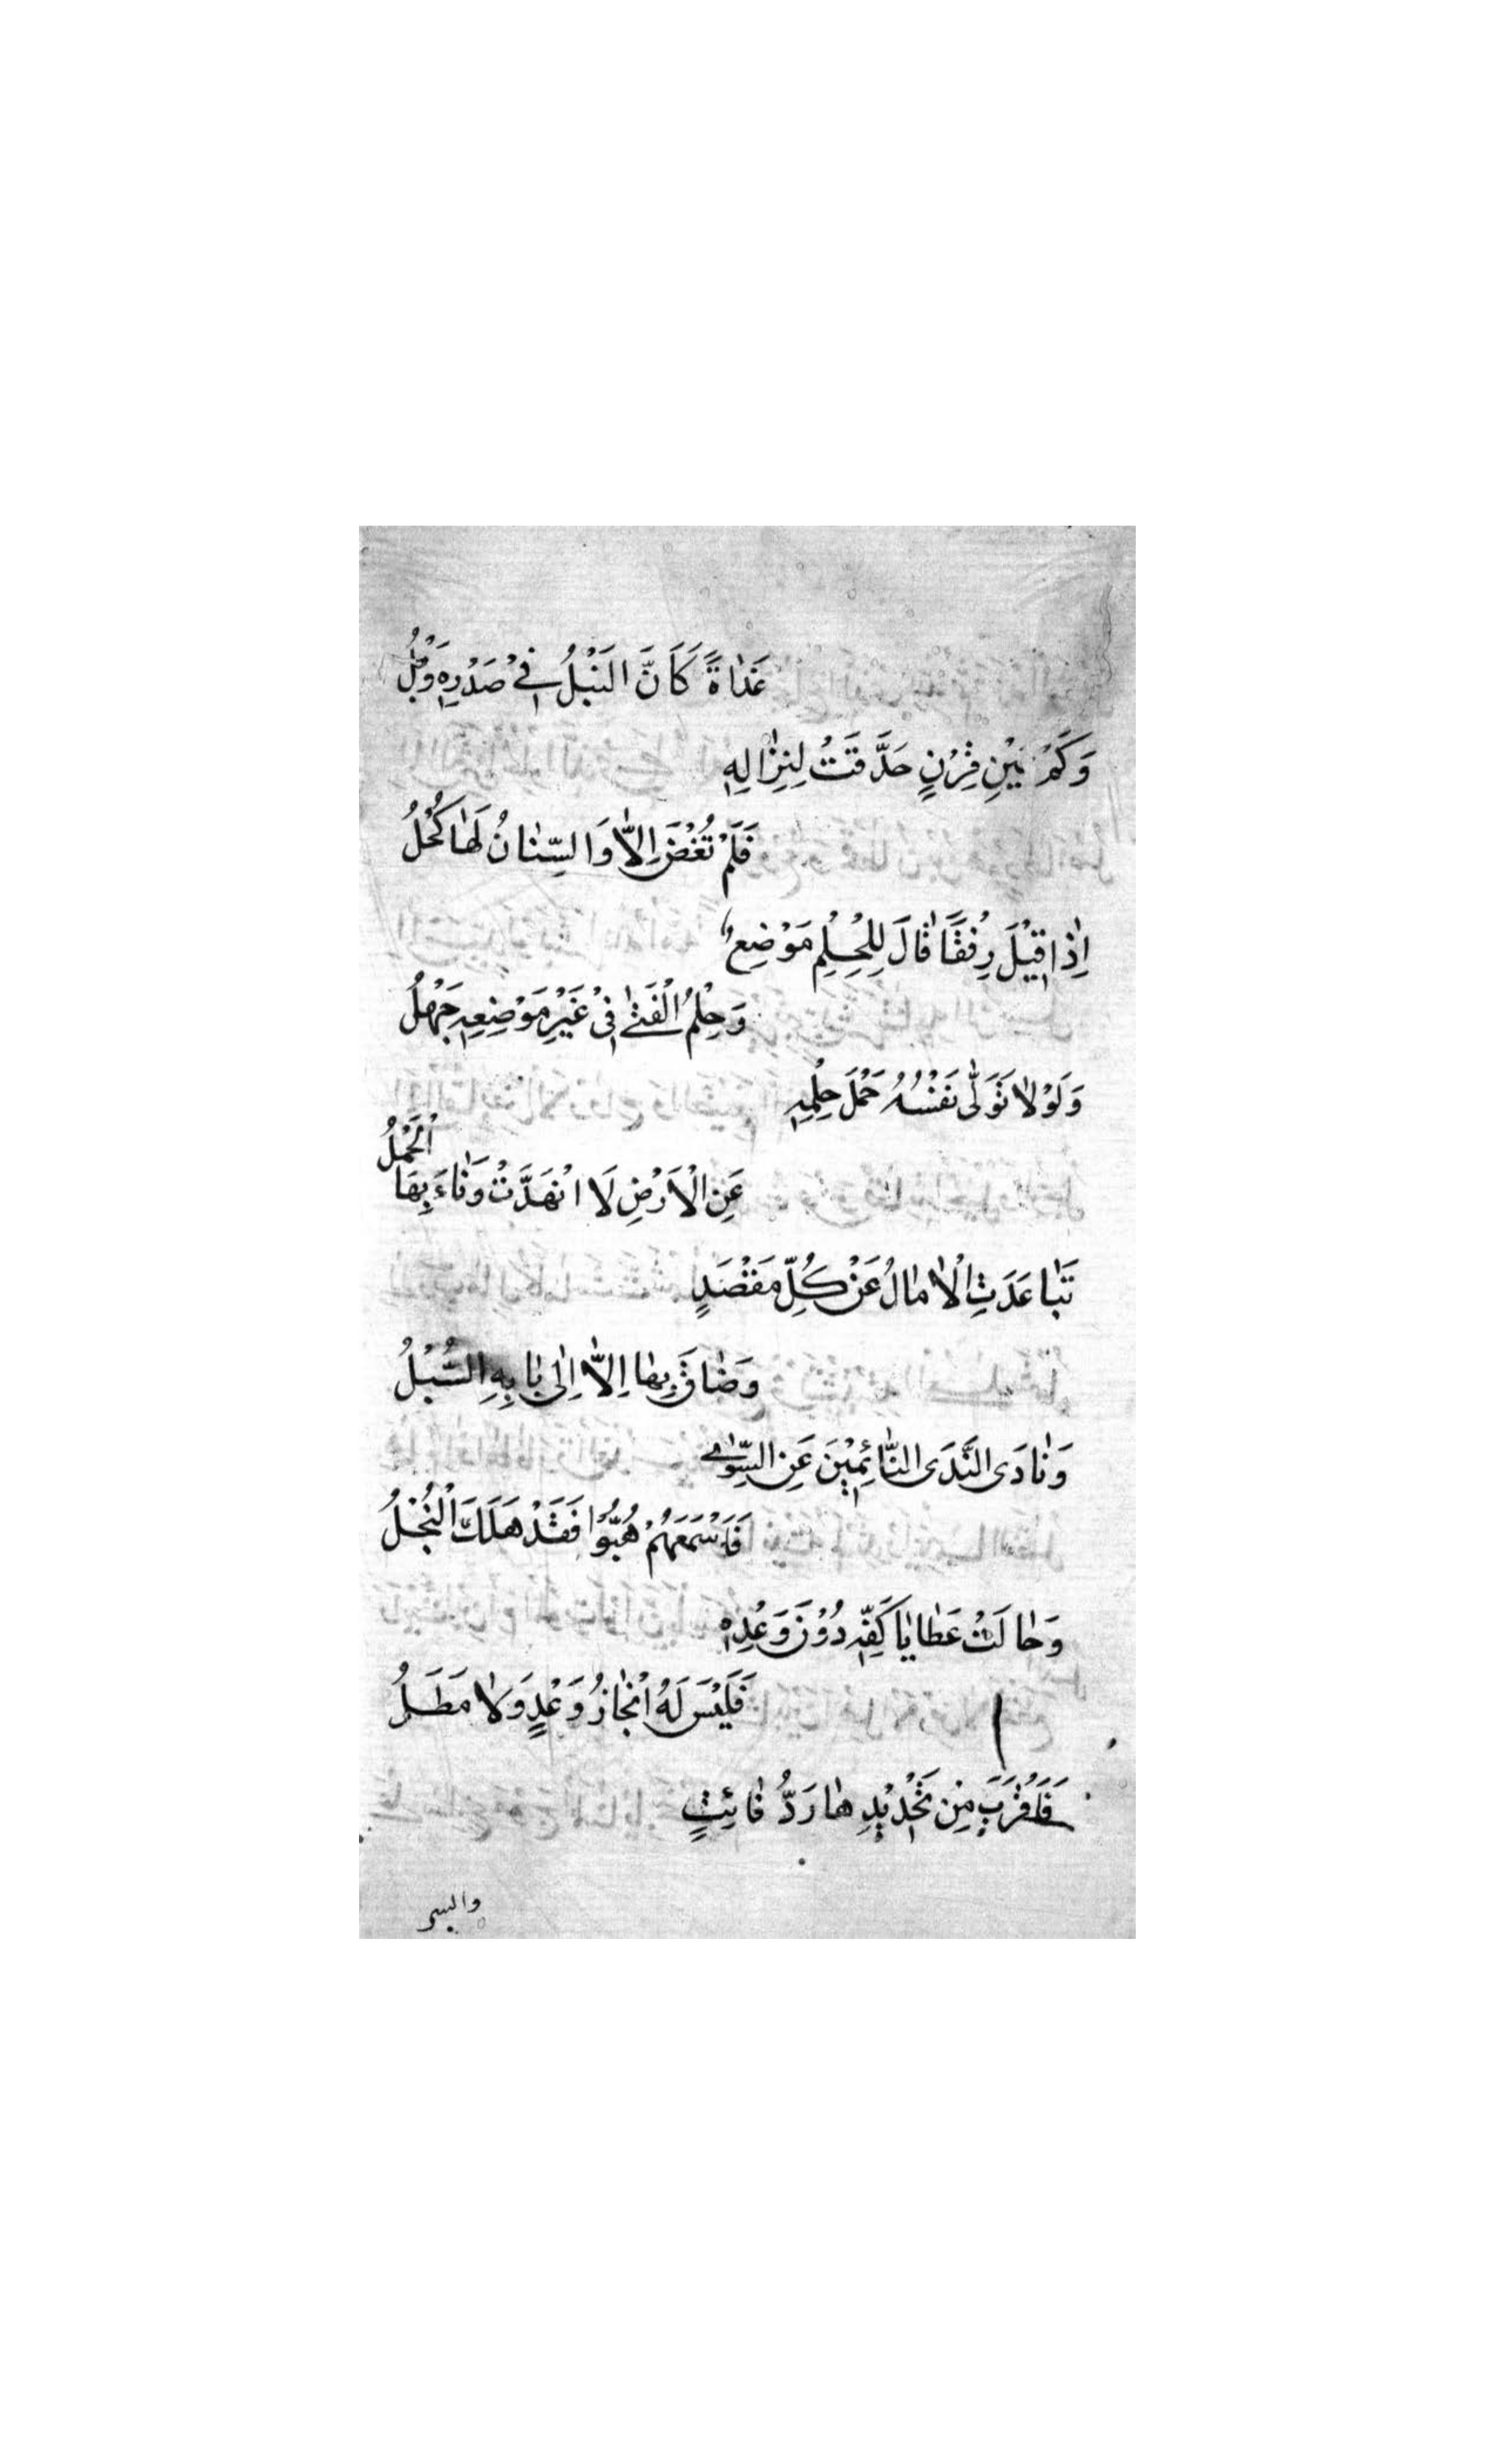 غَدَاةً كَاَنَّ النَبْلُ فِيْ صَدْرِهِ وَبْلُ
وَكَمْ بَيْنِ قِرْنٍ حَدَّقَتْ لِنِزَالِهِ
فَلَمْ تُغْضَ اِلاَّ وَالسِّنَانُ لَهَا كُحْلُ
اِذَا قِيْلَ رِفْقًا قَالَ لِلْحِلْمِ مَوْضِعٌ
وَحِلْمُ الْفَتٰى فِيْ غَيْرِ مَوْضِعِهِ جَهْلُ
وَلَوْلَا تَوَلّٰى نَفْسُهُ حَمْلَ حِلْمِهِ
عَنِ الْاَرْضِ لَا انْهَدَّتْ وَنَاءَ بِهَا الْحَمْلُ
تَبَاعَدَتِ الْاٰمَالُ عَنْ كُلِّ مَقْصَدٍ
وَضَاقَ بِهَا اِلاَّ اِلٰى بَابِهِ السُّبْلُ
وَنَادَى النَّدَى النَّائِمِيْنَ عَنِ السِّوٰى
فَاَسْمَعَهُمْ هُبُّوْا فَقَدْ هَلَكَ الْبُخْلُ
وَحَالَتْ عَطَايَا كَفِّهِ دُوْنَ وَعْدِهِ
فَلَيْسَ لَهُ اِنْجَازُ وَعْدٍ وَلَا مَطَلُ
فَاَقْرَبِ مِنْ تَحْدِيْدِهَا رَدُّ فَائِتٍ